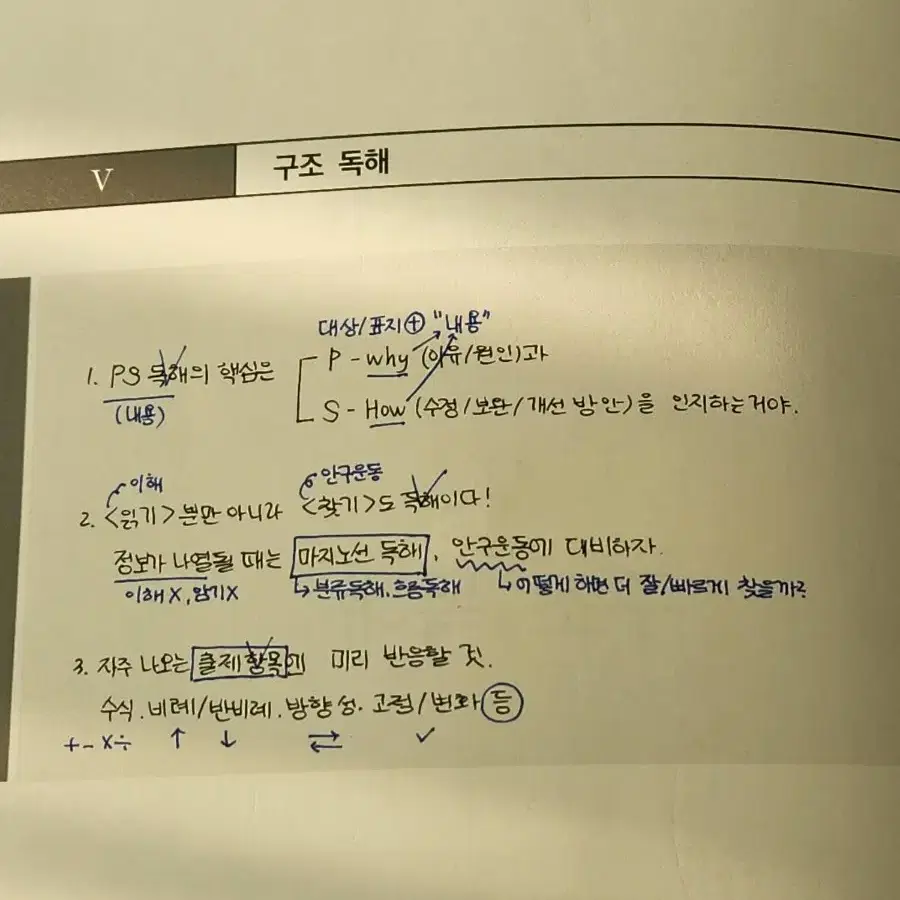 V 구조 독해
대상/표지 ⊕ "내용"
1. PS 독해의 핵심은
P - why (이유/원인)과
S - How (수정/보완/개선 방안)을 인지하는거야.
(내용)
이해
안구운동
2. <읽기>뿐만 아니라 <찾기>도 독해이다!
정보가 나열될 때는 마지노선 독해, 안구운동에 대비하자.
이해X, 암기X ↳분류독해, 흐름독해 ↳어떻게 해면 더 잘/빠르게 찾을까?
3. 자주 나오는 출제 항목에 미리 반응할 것.
수식, 비례/반비례, 방향성, 고정/변화 등
+ - × ÷ ↑ ↓ ⇄ ✓